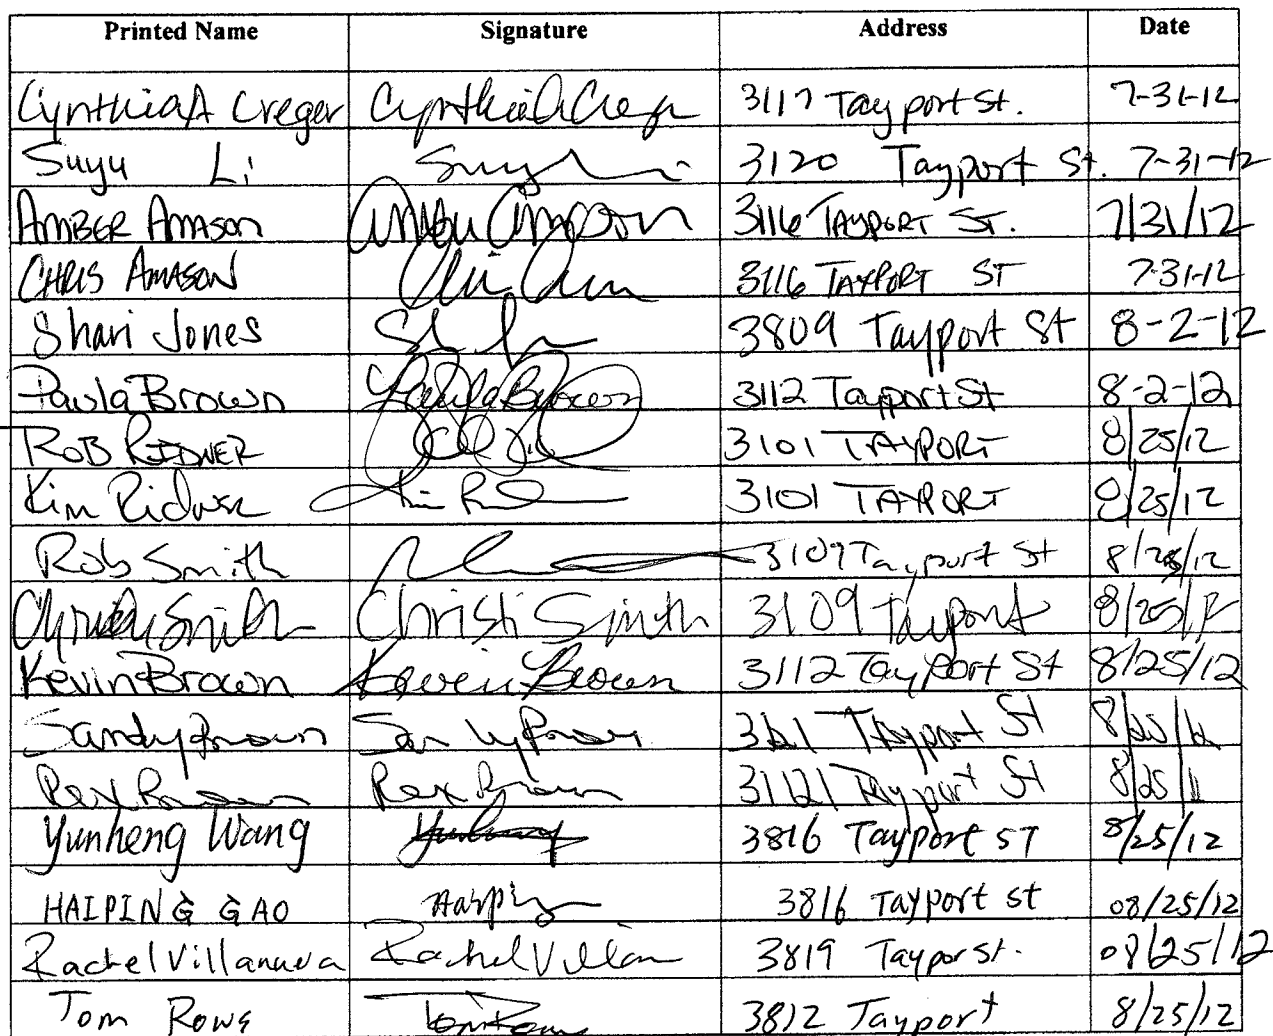 Printed Name Signature Address Date
Cynthia A Creger Cynthia A Creger 3117 Tayport St. 7-31-12
Suyu Li Suyu Li 3120 Tayport St. 7-31-12
AMBER AMASON Amber Amason 3116 TAYPORT ST. 7/31/12
CHRIS AMASON 3116 TAYPORT ST 7-31-12
Shari Jones 3809 Tayport St 8-2-12
Paula Brown Paula Brown 3112 Tayport St 8-2-12
ROB RIDNER 3101 TAYPORT 8/25/12
Kim Ridner 3101 TAYPORT 8/25/12
Rob Smith 3109 Tayport St
Christi Smith Christi Smith 3109 Tayport 8/25/12
Kevin Brown Kevin Brown 3112 Tayport St 8/25/12
Sandy Brown Sandy Brown Tayport St
Rex Brown Rex Brown 3121 Tayport St
Yunheng Wang 3816 Tayport ST 8/25/12
HAIPING GAO Haiping 3816 Tayport st 08/25/12
Rachel Villanueva Rachel Villan 3819 Taypor St. 08/25/12
Tom Rowe Tom Rowe 3812 Tayport 8/25/12